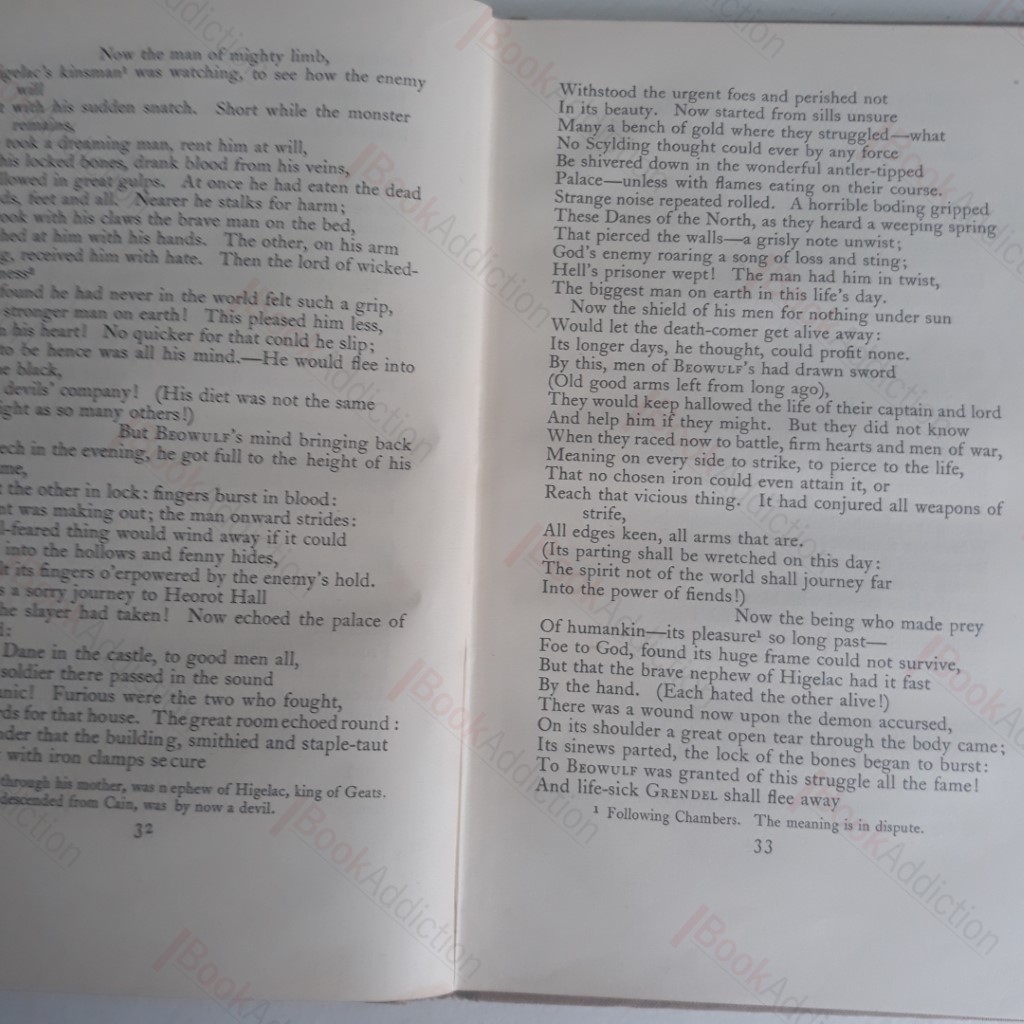 Now the man of mighty limb,
kinsman¹ was watching, to see how the enemy
will
with his sudden snatch. Short while the monster
remains,
took a dreaming man, rent him at will,
his locked bones, drank blood from his veins,
in great gulps. At once he had eaten the dead
feet and all. Nearer he stalks for harm;
with his claws the brave man on the bed,
at him with his hands. The other, on his arm
received him with hate. Then the lord of wicked-
ness²
found he had never in the world felt such a grip,
stronger man on earth! This pleased him less,
his heart! No quicker for that could he slip;
to be hence was all his mind.—He would flee into
black,
devils' company! (His diet was not the same
as so many others!)
But BEOWULF's mind bringing back
in the evening, he got full to the height of his
the other in lock: fingers burst in blood:
was making out; the man onward strides:
thing would wind away if it could
into the hollows and fenny hides,
its fingers o'erpowered by the enemy's hold.
a sorry journey to Heorot Hall
slayer had taken! Now echoed the palace of
Dane in the castle, to good men all,
soldier there passed in the sound
Furious were the two who fought,
for that house. The great room echoed round:
that the building, smithied and staple-taut
with iron clamps secure
through his mother, was nephew of Higelac, king of Geats.
descended from Cain, was by now a devil.
32
Withstood the urgent foes and perished not
In its beauty. Now started from sills unsure
Many a bench of gold where they struggled—what
No Scylding thought could ever by any force
Be shivered down in the wonderful antler-tipped
Palace—unless with flames eating on their course.
Strange noise repeated rolled. A horrible boding gripped
These Danes of the North, as they heard a weeping spring
That pierced the walls—a grisly note unwist;
God's enemy roaring a song of loss and sting;
Hell's prisoner wept! The man had him in twist,
The biggest man on earth in this life's day.
Now the shield of his men for nothing under sun
Would let the death-comer get alive away:
Its longer days, he thought, could profit none.
By this, men of BEOWULF's had drawn sword
(Old good arms left from long ago),
They would keep hallowed the life of their captain and lord
And help him if they might. But they did not know
When they raced now to battle, firm hearts and men of war,
Meaning on every side to strike, to pierce to the life,
That no chosen iron could even attain it, or
Reach that vicious thing. It had conjured all weapons of
strife,
All edges keen, all arms that are.
(Its parting shall be wretched on this day:
The spirit not of the world shall journey far
Into the power of fiends!)
Now the being who made prey
Of humankin—its pleasure¹ so long past—
Foe to God, found its huge frame could not survive,
But that the brave nephew of Higelac had it fast
By the hand. (Each hated the other alive!)
There was a wound now upon the demon accursed,
On its shoulder a great open tear through the body came;
Its sinews parted, the lock of the bones began to burst:
To BEOWULF was granted of this struggle all the fame!
And life-sick GRENDEL shall flee away
¹ Following Chambers. The meaning is in dispute.
33